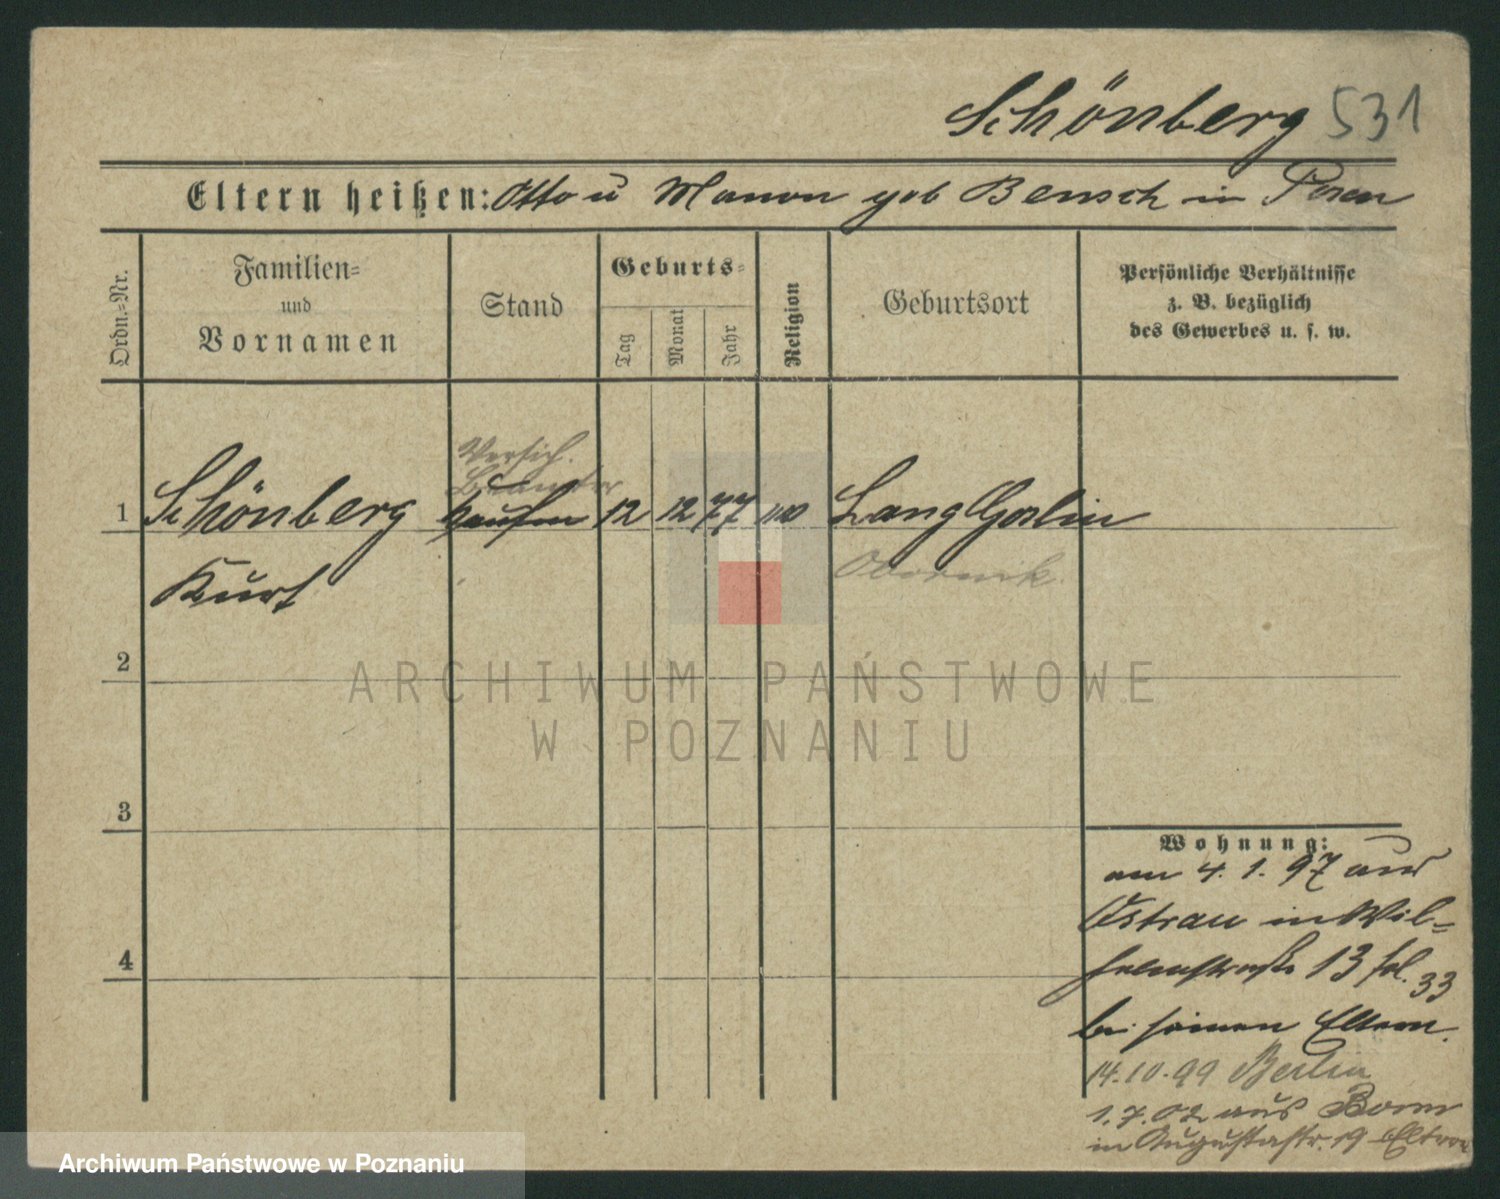 Schönberg 531
Eltern heißen: Otto u Manon geb Bensch in Posen
Ordn.-Nr.
Familien-
und
Vornamen
Stand
Geburts-
Tag
Monat
Jahr
Religion
Geburtsort
Persönliche Verhältnisse
z. B. bezüglich
des Gewerbes u. s. w.
Versich.
Beamter
1 Schönberg Kaufm 12 12 77 Lang Goslin
Kurt
Obornik
2
3
4
Wohnung:
am 4. 1. 97 aus
Ostrau in Wil-
helmstraße 13 fol. 33
bei seinen Eltern.
14.10.99 Berlin
1.7.02 aus Bonn
in Augustastr. 19 Eltern
ARCHIWUM PAŃSTWOWE
W POZNANIU
Archiwum Państwowe w Poznaniu